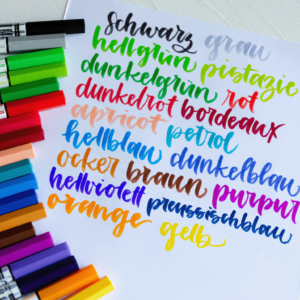 schwarz grau
hellgrün pistazie
dunkelgrün rot
dunkelrot bordeaux
apricot petrol
hellblau dunkelblau
ocker braun purpur
hellviolett preussischblau
orange gelb